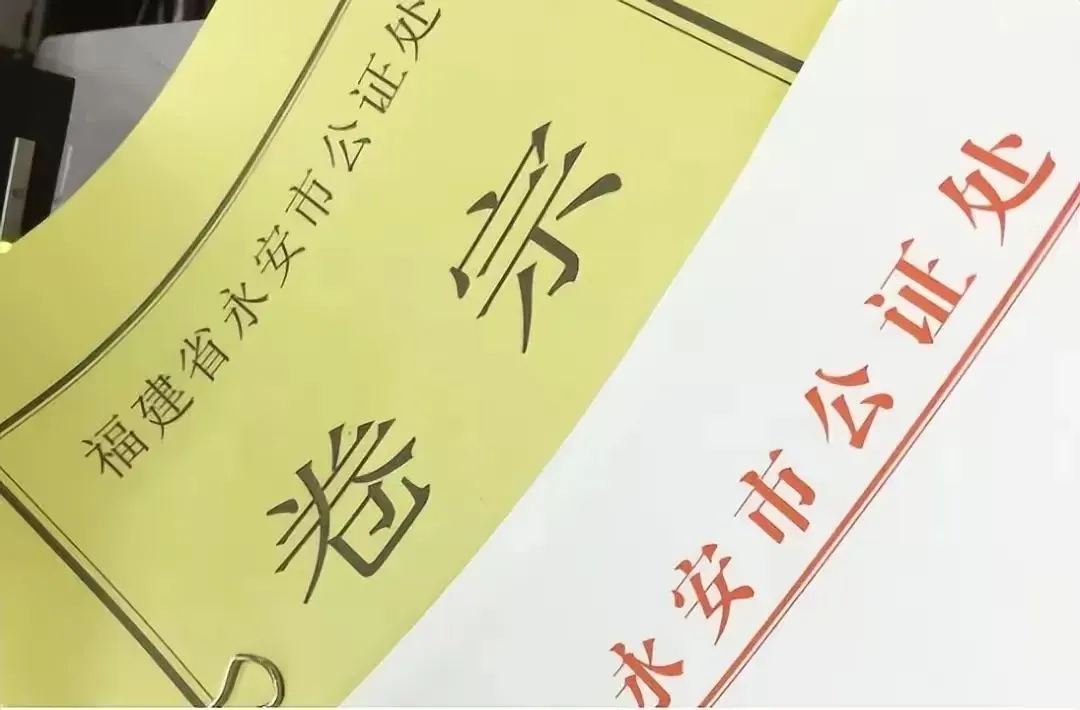 福建省永安市公证处
卷宗
永安市公证处